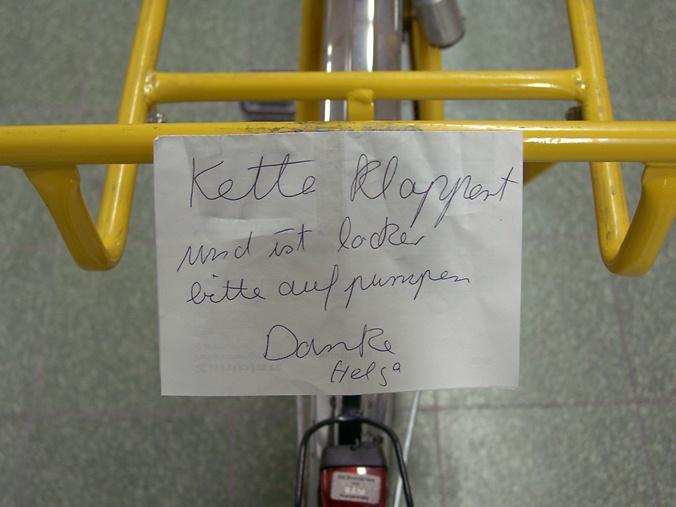 Kette klappert
und ist locker
bitte aufpumpen
Danke
Helga